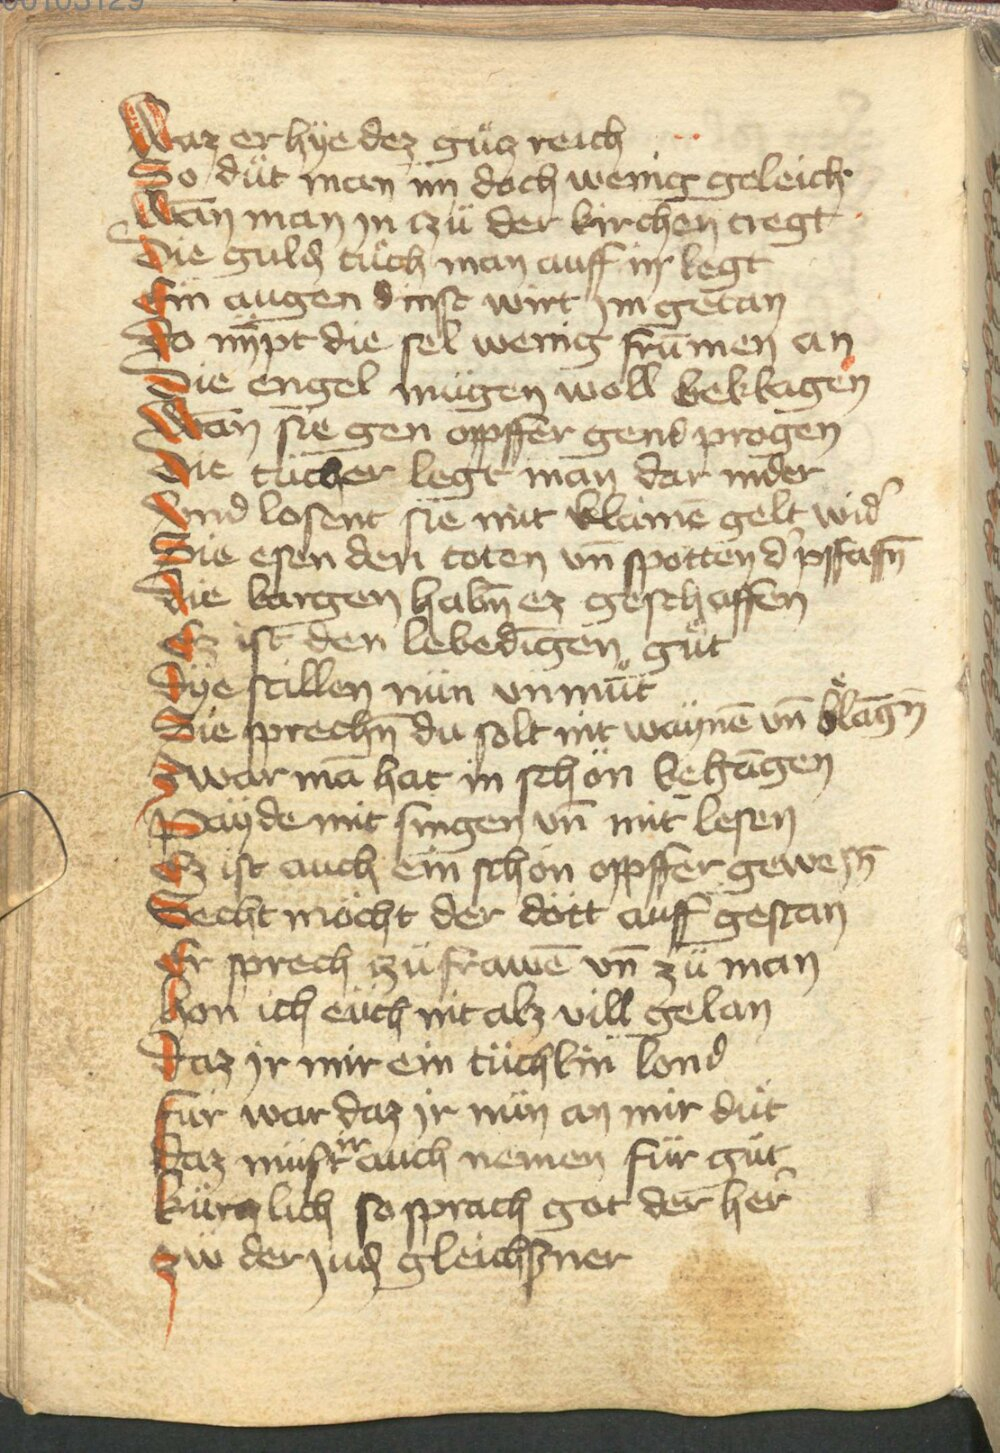 00105129
Waz er hÿe dez gůcz reich
So düt man im doch wenig geleich
Wān man jn czü der kirchen tregt
Die guld tůch man auff in legt
Ein augen dinst wirt jm getan
Do nÿpt die sel wenig frūmen an
Die engel mügen woll beklagen
Wan sie gen opffer gend progen
Die tücher legt man dar nider
Vnd losent sie mit klainē gelt wid'
Die esen den toten vn̄ spotten d' pfaffn̄
Die kargen habn̄ ez geschaffen
Ez ist den lebedigen gůt
Dÿe stillen nün vnmůt
Die sprechn̄ du solt nit waÿnē vn̄ klāgn̄
Zwar mā hat in schön begangen
Paÿde mit singen vn̄ mit lesen
Ez ist auch ein schön opffer gewesn̄
Secht möcht der dott auff gestan
Er sprech czü frawē vn̄ zü man
Hon ich eüch nit alz vill gelan
Daz jr mir ein tüchlin lond
Für war daz jr nün an mir düt
Daz müst ir auch nemen für güt
Kürczlich so sprach got der her'
Zw der jud gleichsner